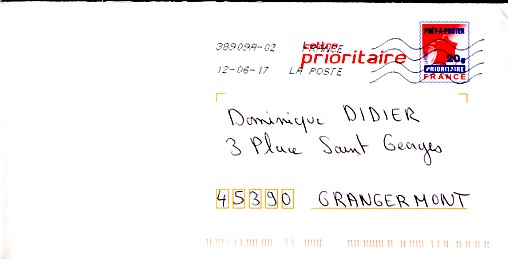 38909A-02 FRANCE
Lettre
prioritaire
12-06-17 LA POSTE
PRÊT-À-POSTER
20g
PRIORITAIRE
FRANCE
Dominique DIDIER
3 Place Saint Georges
45390 GRANGERMONT